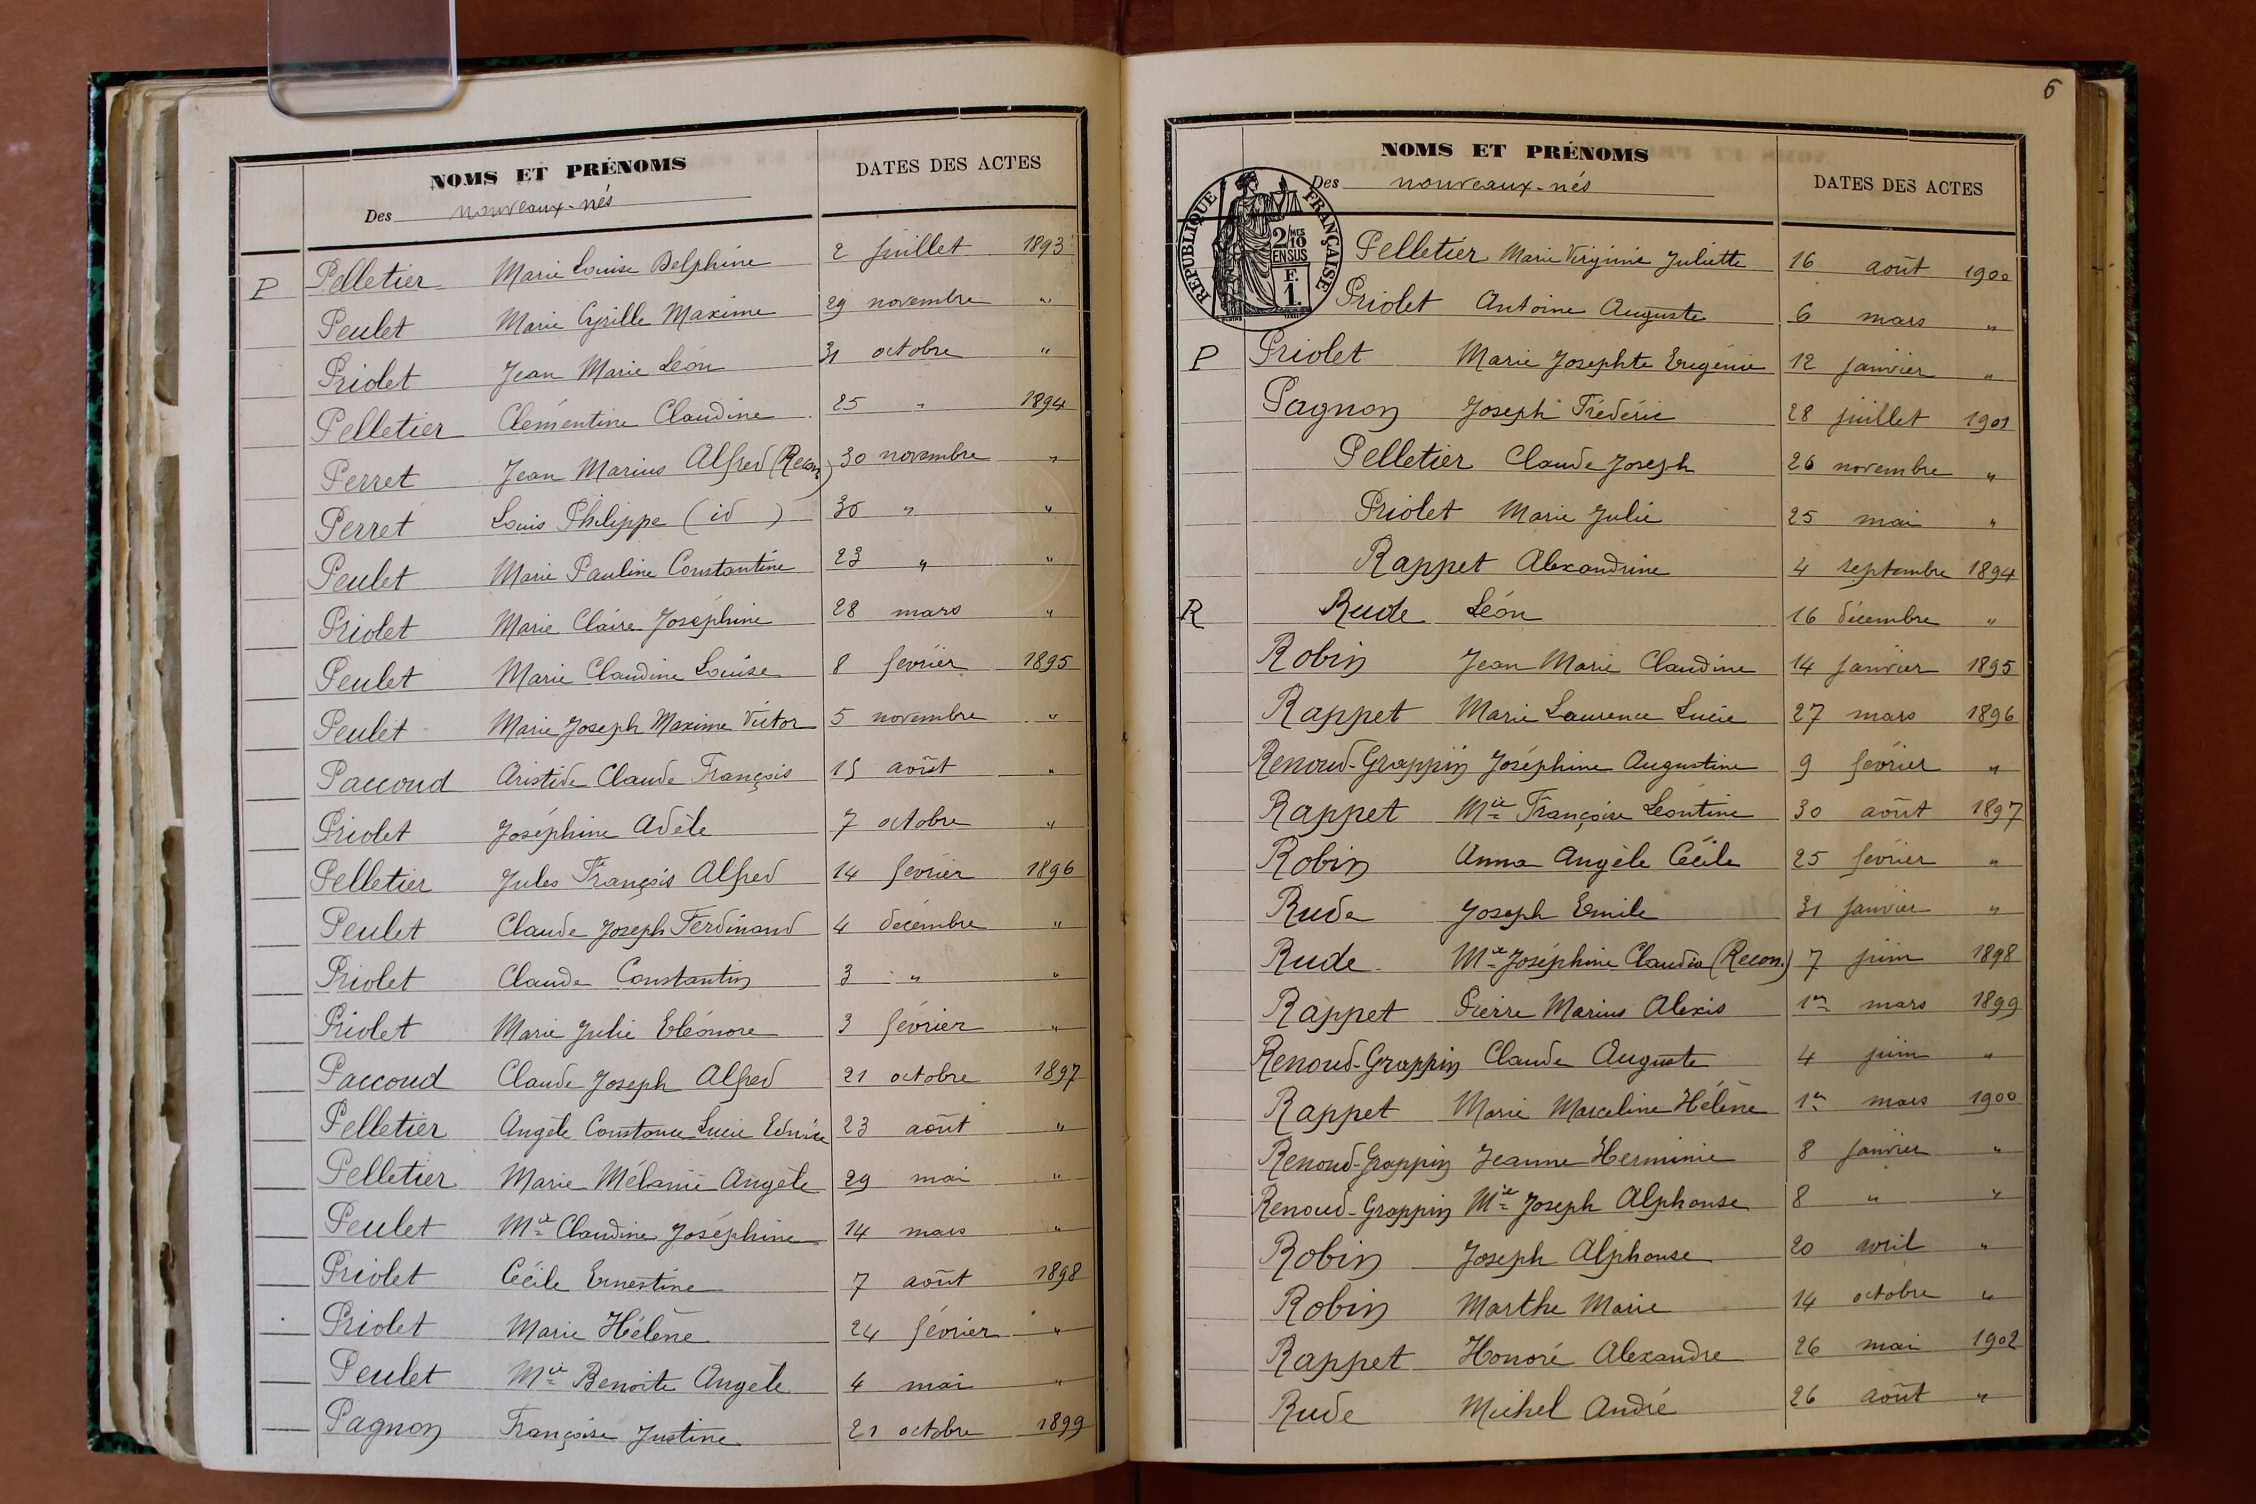 NOMS ET PRÉNOMS
Des nouveaux-nés
DATES DES ACTES
P Pelletier Marie Louise Delphine 2 juillet 1893
Peulet Marie Cyrille Maxime 29 novembre "
Priolet Jean Marie Léon 31 octobre "
Pelletier Clémentine Claudine 25 " 1894
Perret Jean Marius Alfred (Recon) 30 novembre "
Perret Louis Philippe (id) 30 " "
Peulet Marie Pauline Constantine 23 " "
Priolet Marie Claire Joséphine 28 mars "
Peulet Marie Claudine Louise 8 février 1895
Peulet Marie Joseph Maxime Victor 5 novembre "
Paccoud Aristide Claude François 15 août "
Priolet Joséphine Adèle 7 octobre "
Pelletier Jules François Alfred 14 février 1896
Peulet Claude Joseph Ferdinand 4 décembre "
Priolet Claude Constantin 3 " "
Priolet Marie Julie Eléonore 3 février "
Paccoud Claude Joseph Alfred 21 octobre 1897
Pelletier Angèle Constance Lucie 23 août "
Pelletier Marie Mélanie Angèle 29 mai "
Peulet Mie Claudine Joséphine 14 mars "
Priolet Cécile Ernestine 7 août 1898
Priolet Marie Hélène 24 février "
Peulet Mie Benoite Angèle 4 mai "
Pagnon Françoise Justine 21 octobre 1899
6
NOMS ET PRÉNOMS
Des nouveaux-nés
DATES DES ACTES
RÉPUBLIQUE FRANÇAISE
2/10 MES
EN SUS
F.
1.
Pelletier Marie Virginie Juliette 16 août 1900
Priolet Antoine Auguste 6 mars "
P Priolet Marie Josephte Eugénie 12 janvier "
Pagnon Joseph Frédéric 28 juillet 1901
Pelletier Claude Joseph 26 novembre "
Priolet Marie Julie 25 mai "
Rappet Alexandrine 4 septembre 1894
R Rude Léon 16 décembre "
Robin Jean Marie Claudine 14 janvier 1895
Rappet Marie Laurence Lucie 27 mars 1896
Renoud-Grappin Joséphine Augustine 9 février "
Rappet Mie Françoise Léontine 30 août 1897
Robin Anna Angèle Cécile 25 février "
Rude Joseph Emile 31 janvier "
Rude Mie Joséphine Claudia (Recon.) 7 juin 1898
Rappet Pierre Marius Alexis 1er mars 1899
Renoud-Grappin Claude Auguste 4 juin "
Rappet Marie Marceline Hélène 1er mars 1900
Renoud-Grappin Jeanne Herminie 8 janvier "
Renoud-Grappin Mie Joseph Alphonse 8 " "
Robin Joseph Alphonse 20 avril "
Robin Marthe Marie 14 octobre "
Rappet Honoré Alexandre 26 mai 1902
Rude Michel André 26 août "